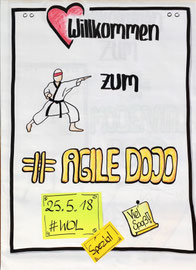 Willkommen
ZUM
AGILE DOJO
25.5.18
#WOL
Spezial
Viel
Spaß!